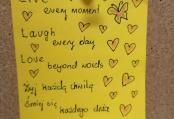 Live
every moment
Laugh
every day
Love
beyond words
Żyj każdą chwilą
Śmiej się
każdego dnia